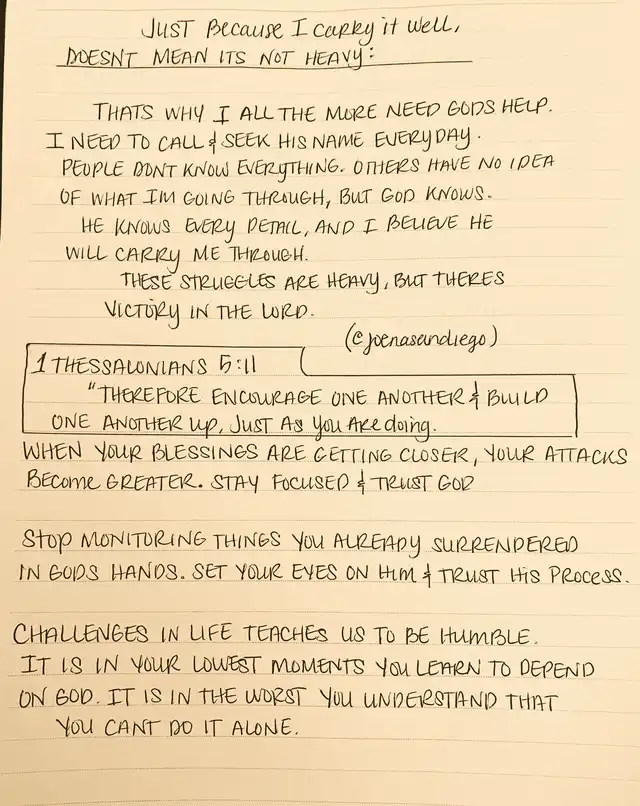 Just Because I carry it well,
DOESNT MEAN ITS NOT HEAVY:
THATS WHY I ALL THE MORE NEED GODS HELP.
I NEED TO CALL & SEEK HIS NAME EVERYDAY.
PEOPLE DONT KNOW EVERYTHING. OTHERS HAVE NO IDEA
OF WHAT IM GOING THROUGH, BUT GOD KNOWS.
HE KNOWS EVERY DETAIL, AND I BELIEVE HE
WILL CARRY ME THROUGH.
THESE STRUGGLES ARE HEAVY, BUT THERES
VICTORY IN THE LORD.
(@joenasandiego)
1 THESSALONIANS 5:11
"THEREFORE ENCOURAGE ONE ANOTHER & BUILD
ONE ANOTHER UP, JUST AS YOU ARE doing.
WHEN YOUR BLESSINGS ARE GETTING CLOSER, YOUR ATTACKS
BECOME GREATER. STAY FOCUSED & TRUST GOD
STOP MONITORING THINGS YOU ALREADY SURRENDERED
IN GODS HANDS. SET YOUR EYES ON HIM & TRUST HIS PROCESS.
CHALLENGES IN LIFE TEACHES US TO BE HUMBLE.
IT IS IN YOUR LOWEST MOMENTS YOU LEARN TO DEPEND
ON GOD. IT IS IN THE WORST YOU UNDERSTAND THAT
YOU CANT DO IT ALONE.